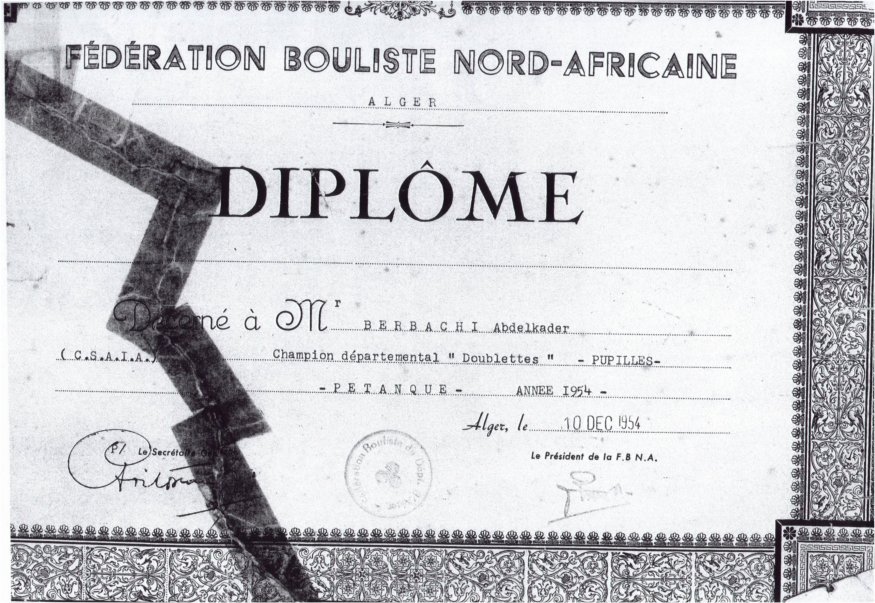 FÉDÉRATION BOULISTE NORD-AFRICAINE
ALGER
DIPLÔME
Décerné à Mr BERBACHI Abdelkader
(C.S.A.I.A.) Champion départemental " Doublettes " - PUPILLES-
-PETANQUE- ANNEE I954 -
Alger, le 10 DEC 1954
P/ Le Secrétaire
Le Président de la F.B N.A.
Fédération Bouliste du Dépt. d'Alger